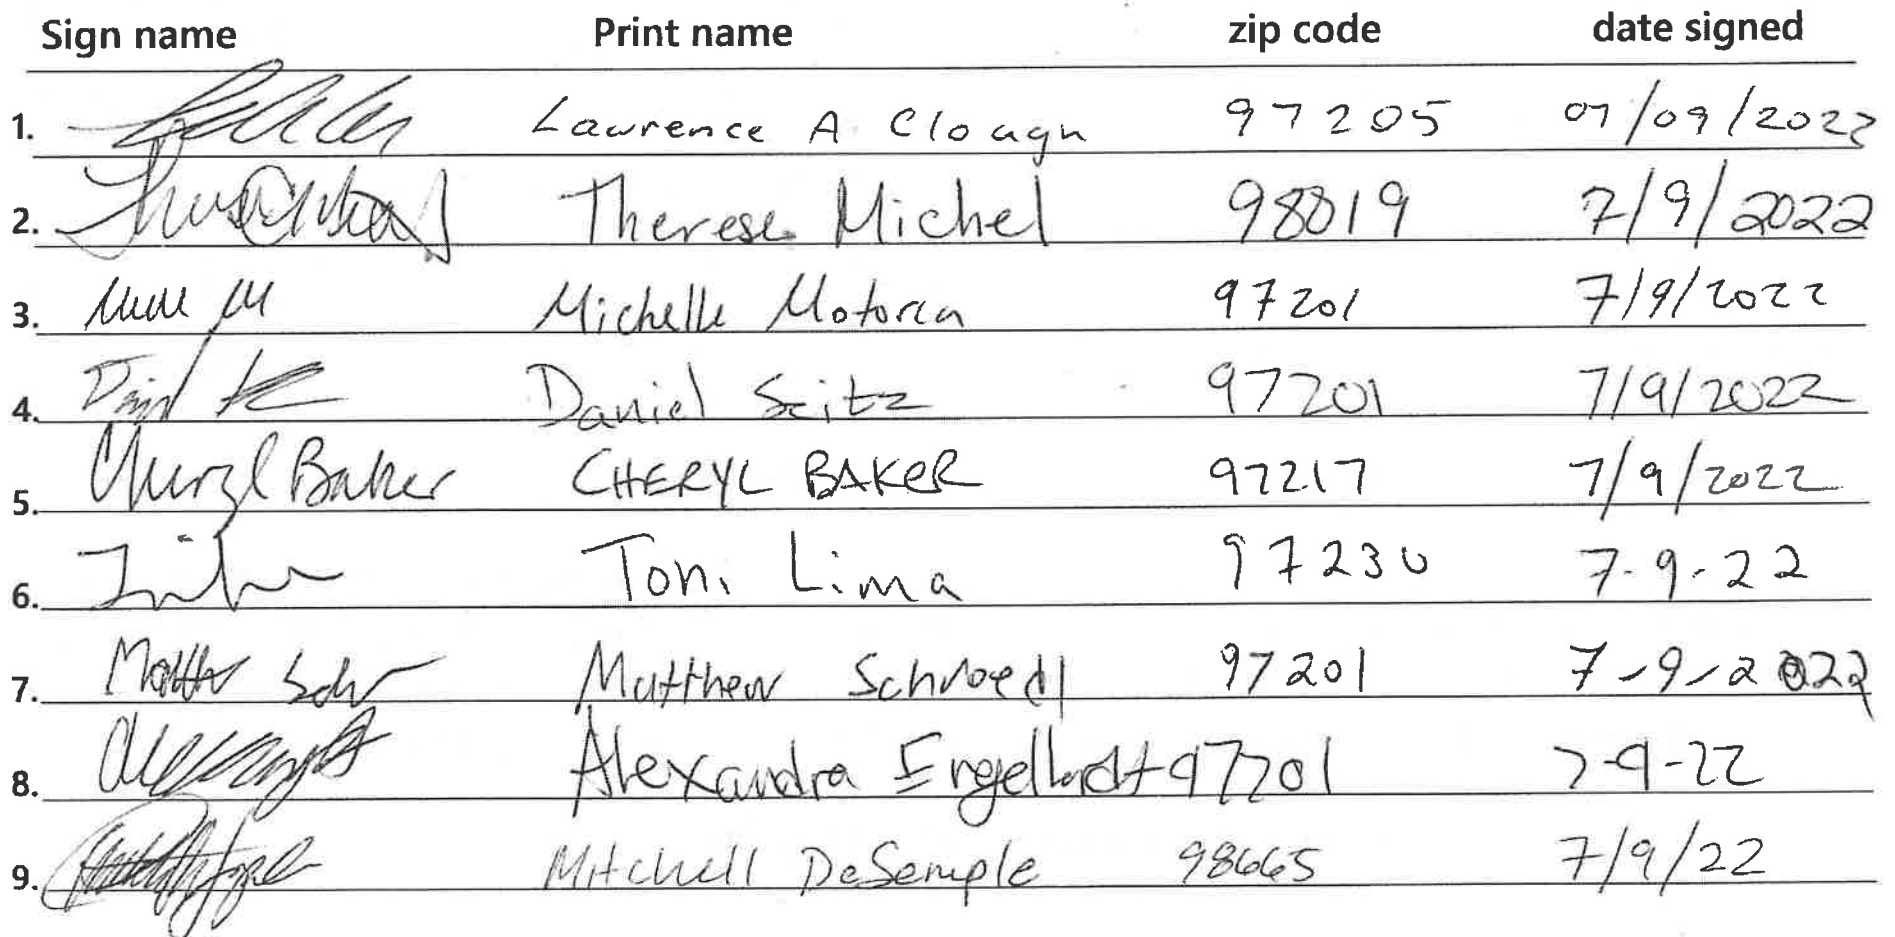 Sign name Print name zip code date signed
1. Lawrence A Clough 97205 07/09/2022
2. Therese Michel 98019 7/9/2022
3. Michelle 97201 7/9/2022
4. Daniel Seitz 97201 7/9/2022
5. Cheryl Baker CHERYL BAKER 97217 7/9/2022
6. Toni Lima 97230 7-9-22
7. Matthew Schroedl 97201 7-9-2022
8. Alexandra Engelhardt 97201 7-9-22
9. Mitchell DeSemple 98665 7/9/22